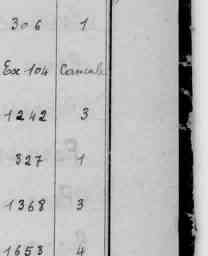 306 1
Ex 104
1242 3
327 1
1368 3
1653 4